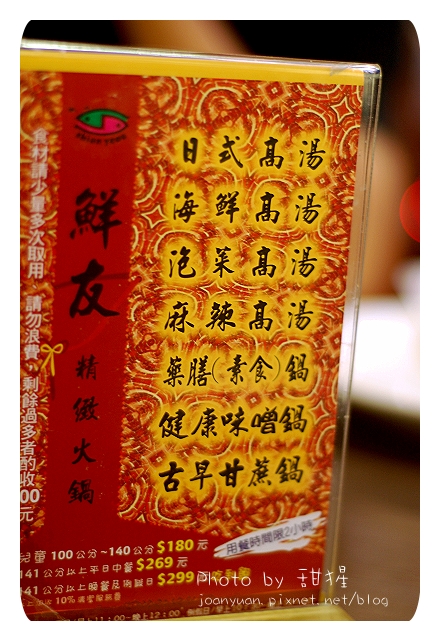 鮮友
精緻火鍋
食材請少量多次取用
請勿浪費
剩餘過多者酌收
00元
日式高湯
海鮮高湯
泡菜高湯
麻辣高湯
藥膳(素食)鍋
健康味噌鍋
古早甘蔗鍋
用餐時間限2小時
兒童100公分~140公分$180元
141公分以上平日中餐$269元
141公分以上晚餐及例假日$299
Photo by 甜猩
joanyuan.pixnet.net/blog